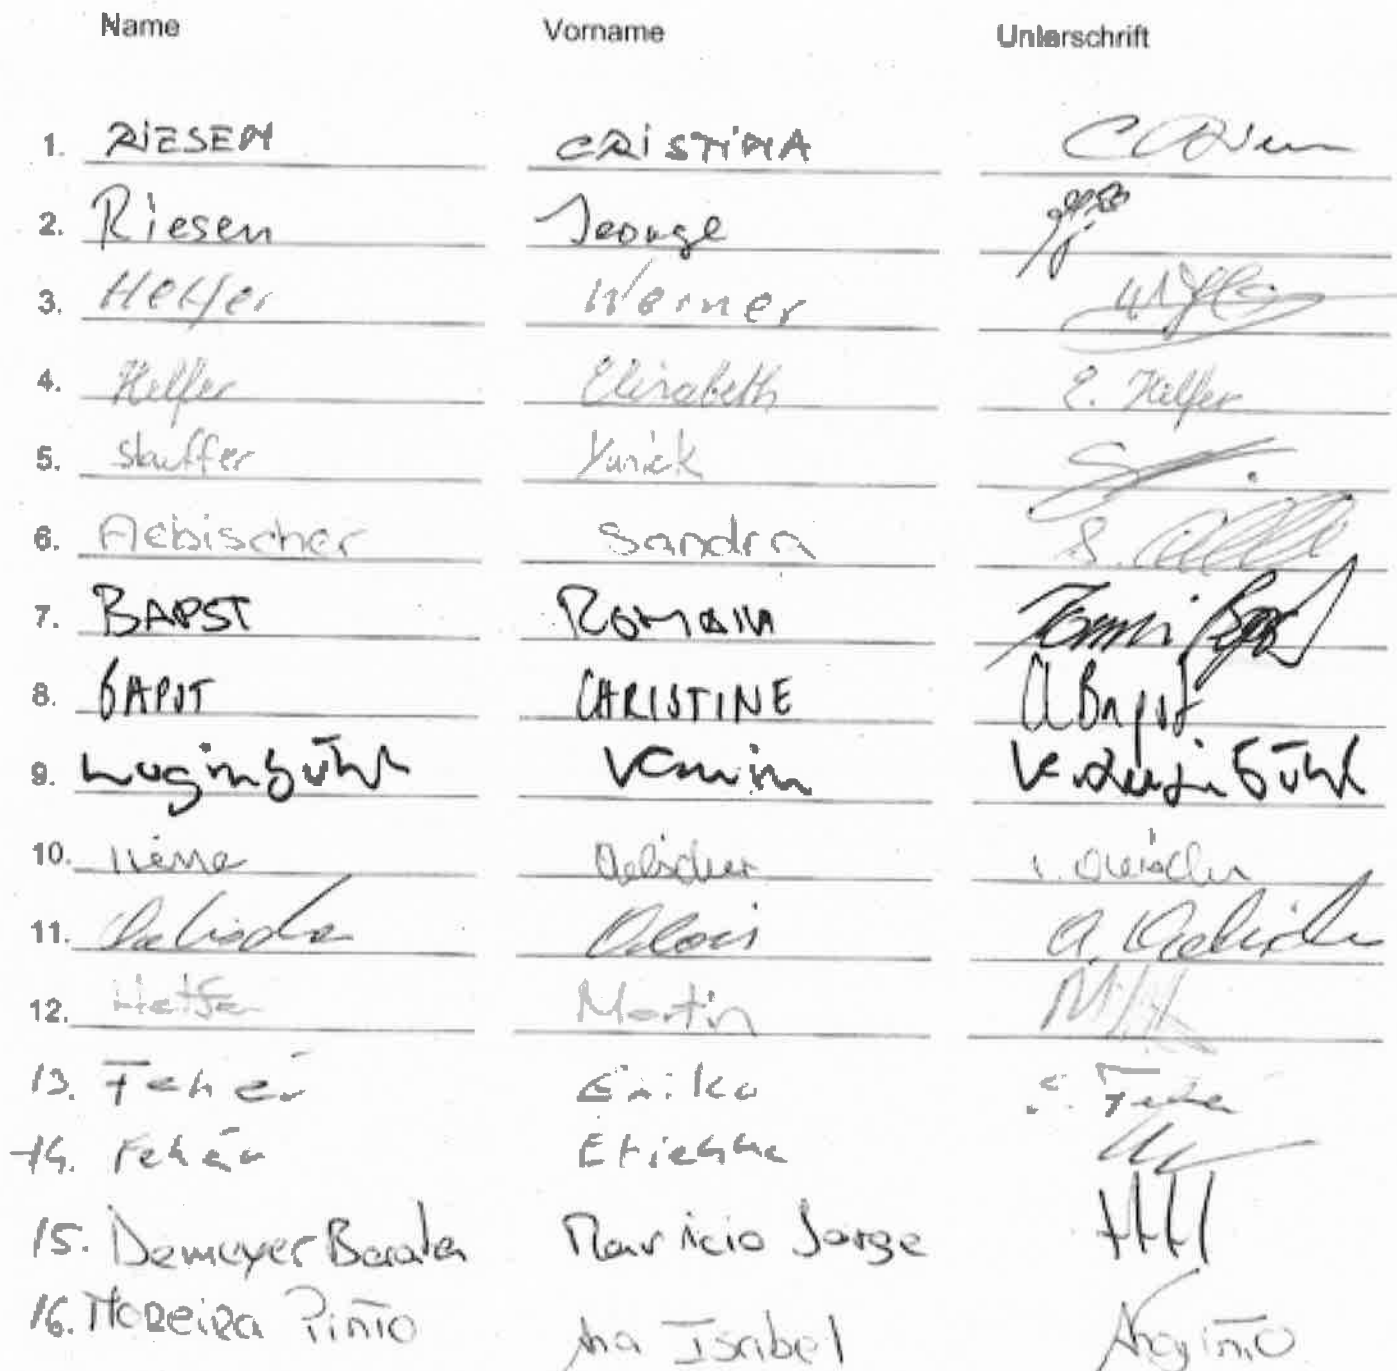 Name Vorname Unterschrift
1. RIESEN CRISTINA
2. Riesen George
3. Helfer Werner
4. Helfer Elisabeth E. Helfer
5. Stauffer Yanick
6. Aebischer Sandra
7. BAPST ROMAIN
8. BAPST CHRISTINE
9. Luginbühl
10. Aebischer
11. Aebischer Alois A. Aebischer
12. Martin
13. Fehér Erika
14. Fehér Etienne
15. Demeyer Mauricio Jorge
16. Moreira Pinto Ana Isabel